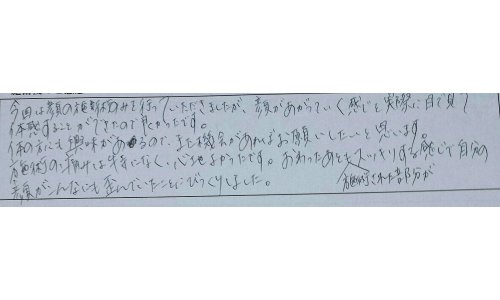 今回は顔の施術のみを行っていただきましたが、顔があがっていく感じを実際に目で見て
体感することができたので良かったです。
体の方にも興味があるので、また機会があればお願いしたいと思います。
施術の痛みは特になく、心地よかったです。おわったあともスッキリする感じで自分の
顔がこんなにも歪んでいたことにびっくりしました。
施術された部分が